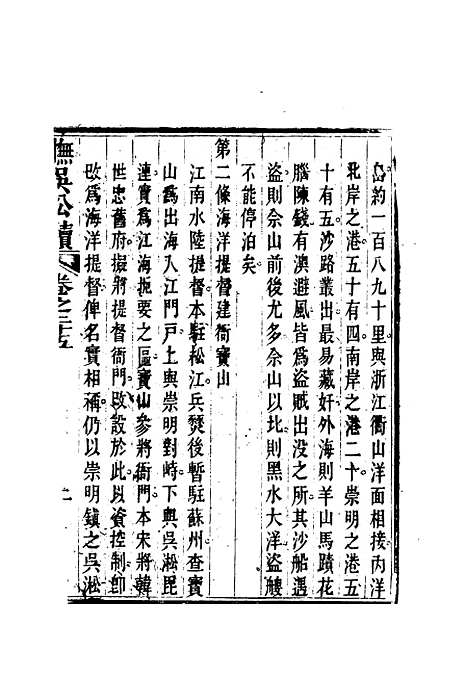 島約一百八九十里與浙江衢山洋面相接內洋
北岸之港五十有四南岸之港二十崇明之港五
十有五沙路叢出最易藏奸外海則羊山馬蹟花
腦陳錢有澳避風皆爲盜賊出沒之所其沙船遇
盜則佘山前後尤多佘山以北則黑水大洋盜艘
不能停泊矣
第二條海洋提督建衙寶山
江南水陸提督本駐松江兵燹後暫駐蘇州查寶
山爲出海入江門戶上與崇明對峙下與吳淞毘
連實爲江海扼要之區寶山參將衙門本宋將韓
世忠舊府擬將提督衙門改設於此以資控制卽
改爲海洋提督俾名實相稱仍以崇明鎮之吳淞
撫吳公牘
卷之三十五